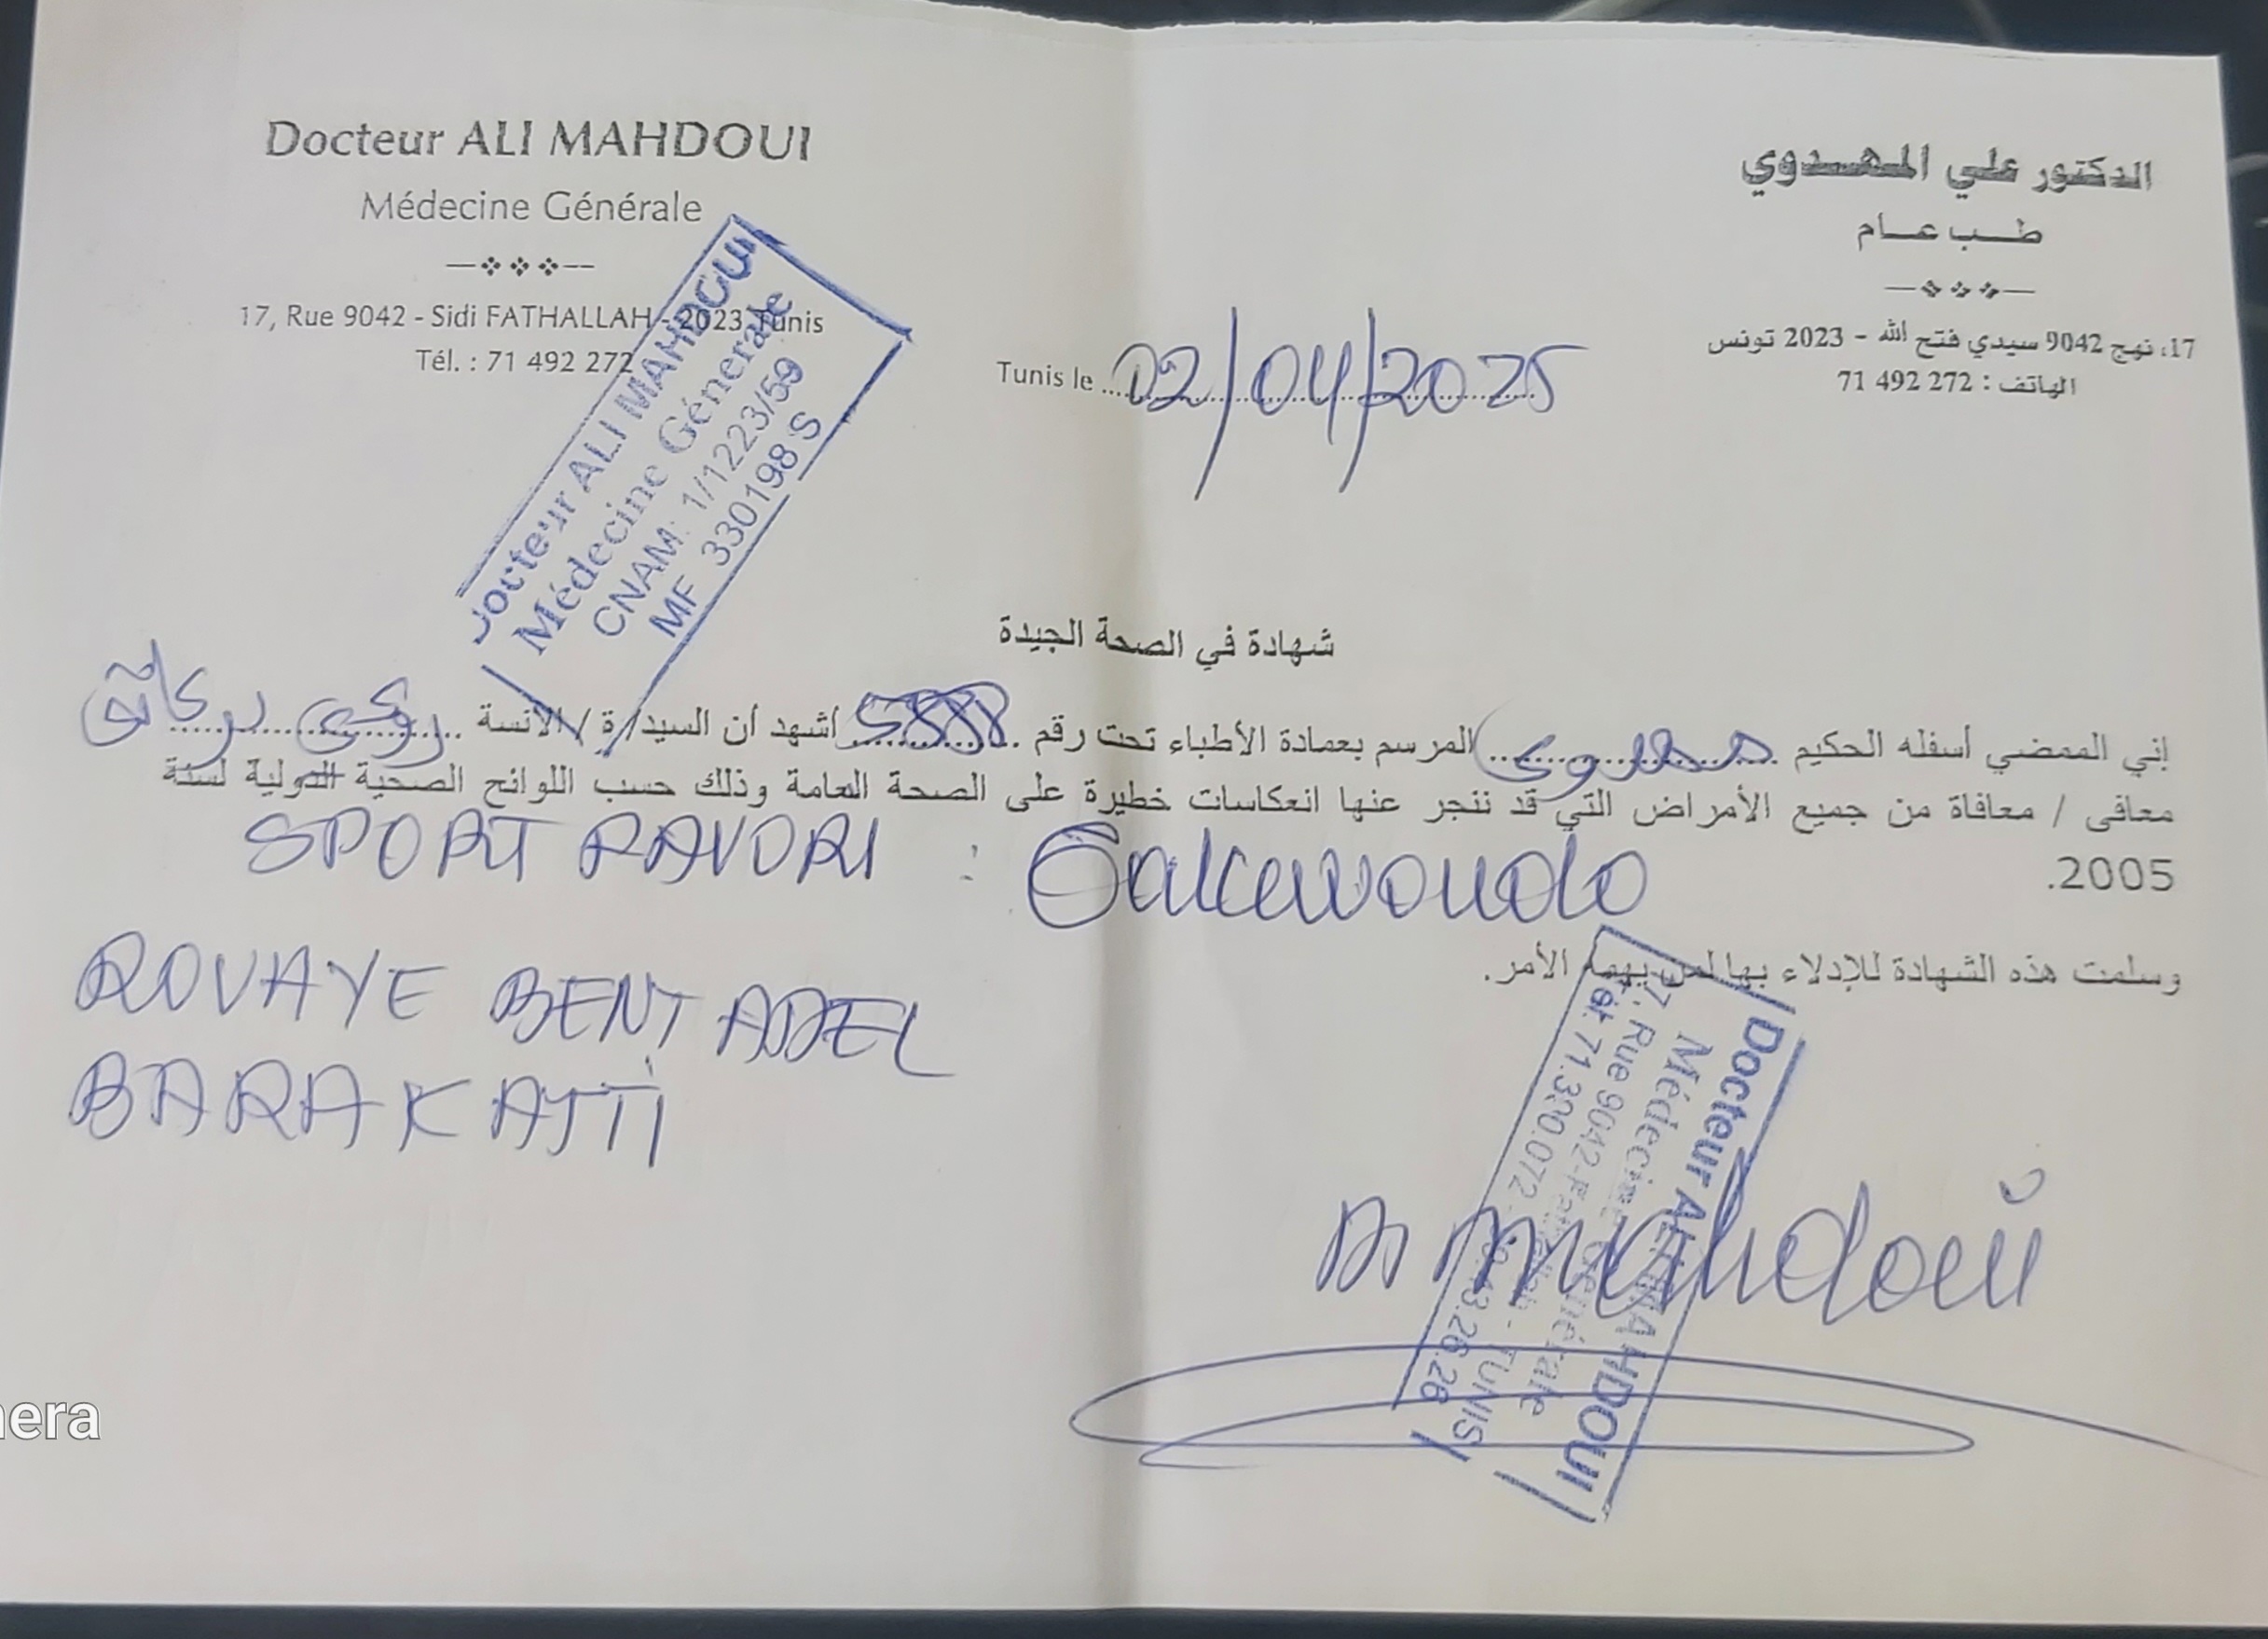 Docteur ALI MAHDOUI
Médecine Générale
17, Rue 9042 - Sidi FATHALLAH - 2023 Tunis
Tél. : 71 492 272
الدكتور علي المهدوي
طب عام
17، نهج 9042 سيدي فتح الله - 2023 تونس
الهاتف : 272 492 71
Docteur ALI MAHDOUI
Médecine Génerale
CNAM: 1/1223/59
MF 330198 S
Tunis le 02/04/2025
شهادة في الصحة الجيدة
إني الممضي أسفله الحكيم مهدوي المرسم بعمادة الأطباء تحت رقم أشهد أن السيد/ة / الآنسة بركاتي
معافى / معافاة من جميع الأمراض التي قد ننجر عنها انعكاسات خطيرة على الصحة العامة وذلك حسب اللوائح الصحية الدولية لسنة
2005.
SPORT :
ROVAYE BENT ADEL
BARAKATTI
وسلمت هذه الشهادة للإدلاء بها لمن يهمه الأمر.
Docteur ALI MAHDOUI
Médecine Générale
17, Rue 9042-Fathallah - TUNIS
Tél. 71.390.072
Dr Mahdoui
nera